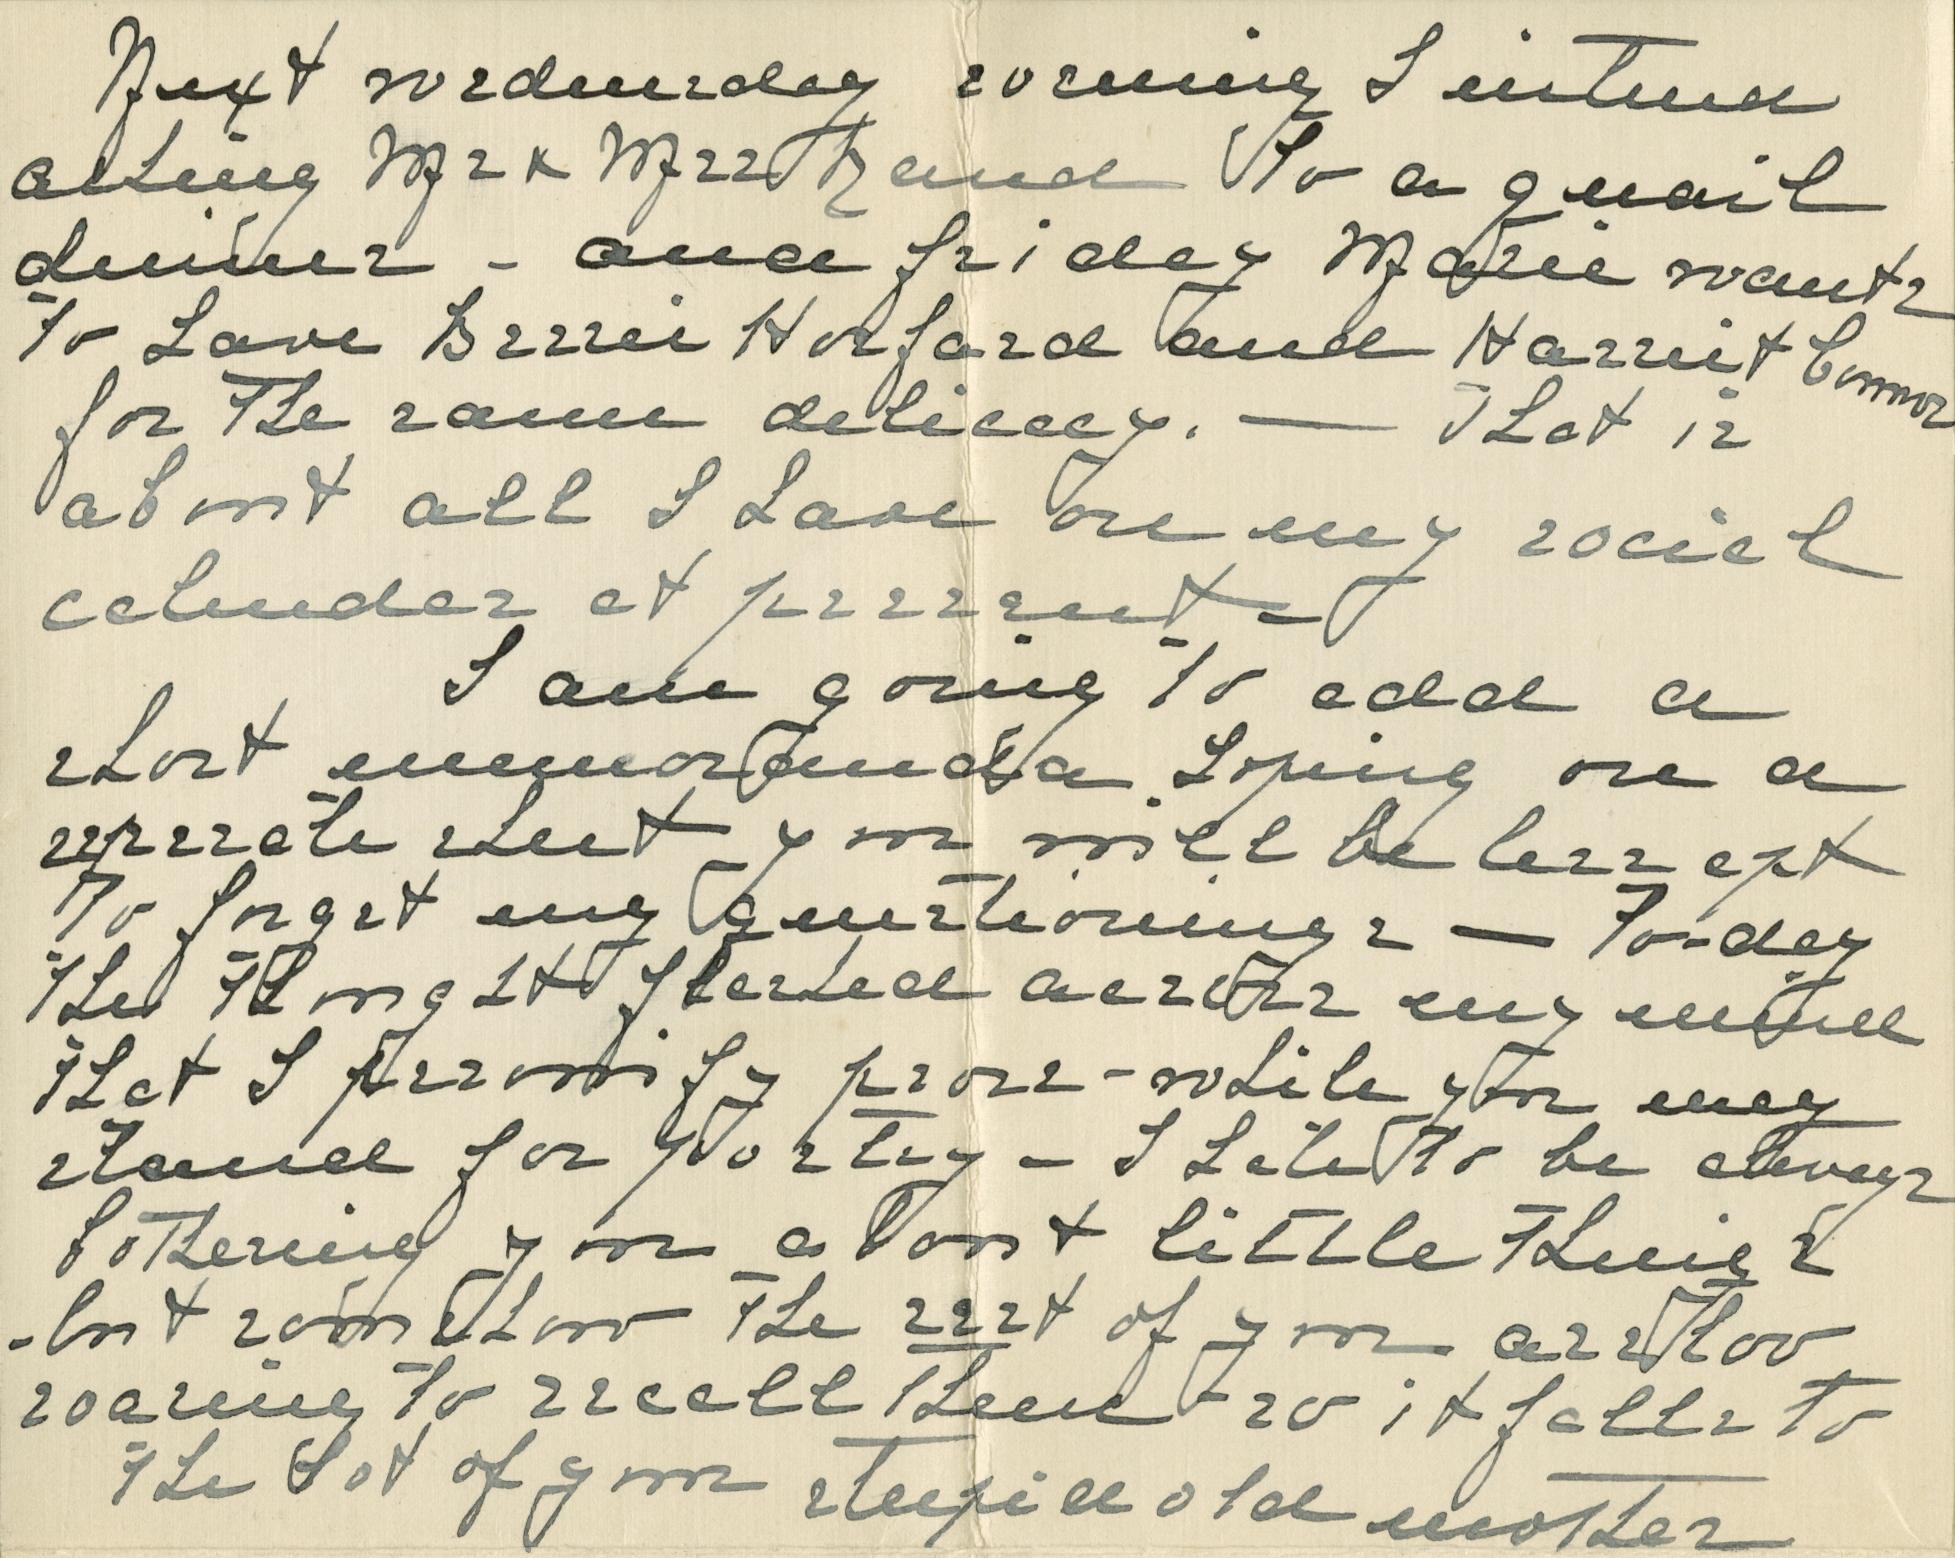 Next wednesday evening I intend
asking Mr & Mrs Hand to a quail
dinner - and friday Marie wants
to have Bessie Horsford and Harriet Connor
for the same delicacy. — That is
about all I have on my social
calender at present -
I am going to add a
short memoranda hoping on a
seperate sheet you will be less apt
to forget my questionings — To-day
the thought flashed across my mind
that I personify prose - while you may
stand for poetry - I hate to be always
bothering you about little things
- but somehow the rest of you are too
soaring to recall them - so it falls to
the lot of your stupid old mother